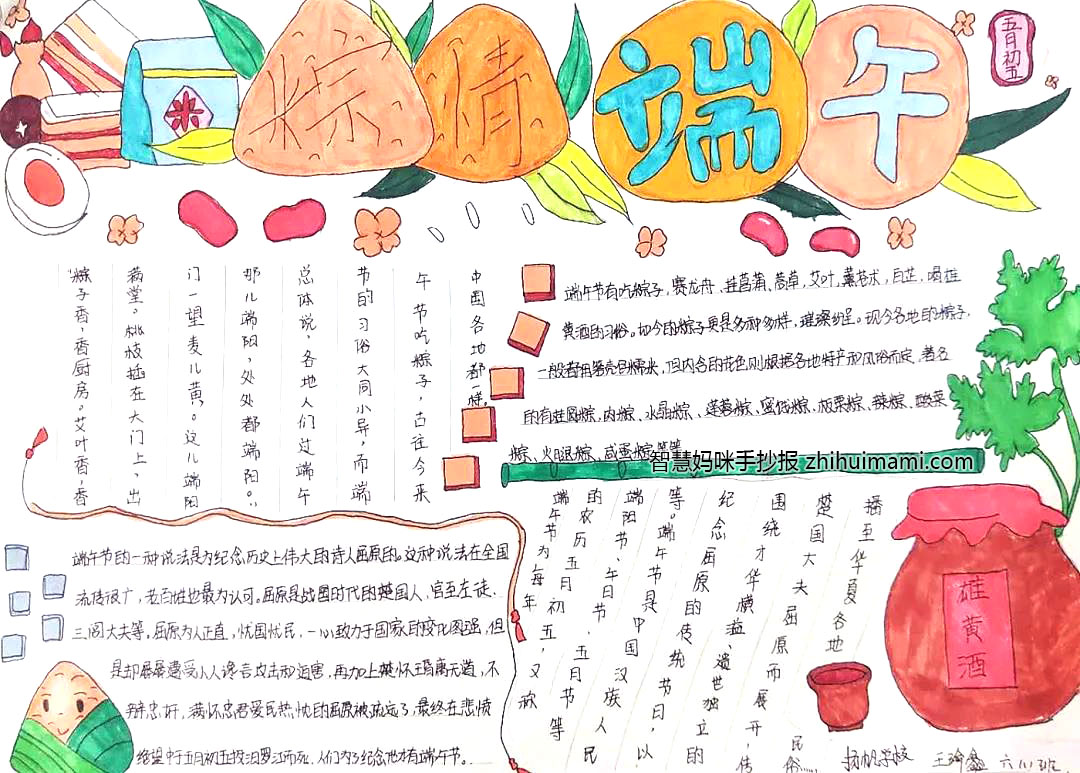 粽情端午
五月初五
米
“粽子香，香厨房。艾叶香，香
满堂。桃枝插在大门上，出
门一望麦儿黄。这儿端阳
那儿端阳，处处都端阳。”
总体说，各地人们过端午
节的习俗大同小异，而端
午节吃粽子，古往今来
中国各地都一样。
端午节有吃粽子，赛龙舟、挂菖蒲、蒿草，艾叶，薰苍术，白芷，喝雄
黄酒的习俗。如今的粽子更是多种多样，璀璨纷呈。现今各地的粽子，
一般都用箬壳包糯米，但内含的花色则根据各地特产和风俗而定，著名
的有桂圆粽、肉粽、水晶粽、莲蓉粽、蜜饯粽、板栗粽、辣粽、酸菜
粽、火腿粽、咸蛋粽等等。
智慧妈咪手抄报 zhihuimami.com
端午节的一种说法是为纪念历史上伟大的诗人屈原的。这种说法在全国
流传很广，老百姓也最为认可。屈原是战国时代的楚国人，官至左徒、
三闾大夫等，屈原为人正直，忧国忧民，一心致力于国家的变化图强，但
是却屡屡遭受人人谗言攻击和迫害，再加上楚怀王昏庸无道，不
辨忠奸，满怀忠君爱民热忱的屈原被疏远了，最终在悲愤
绝望中于五月初五投汨罗江而死，人们为了纪念他才有端午节。
端午节为每年
的农历五月初五，又称
端阳节、午日节、五月节等
等。端午节是中国汉族人民
纪念屈原的传统节日，以
围绕才华横溢、遗世独立的
楚国大夫屈原而展开，传
播至华夏各地，民俗……
雄黄酒
扬帆学校 王瑜鑫 六(1)班